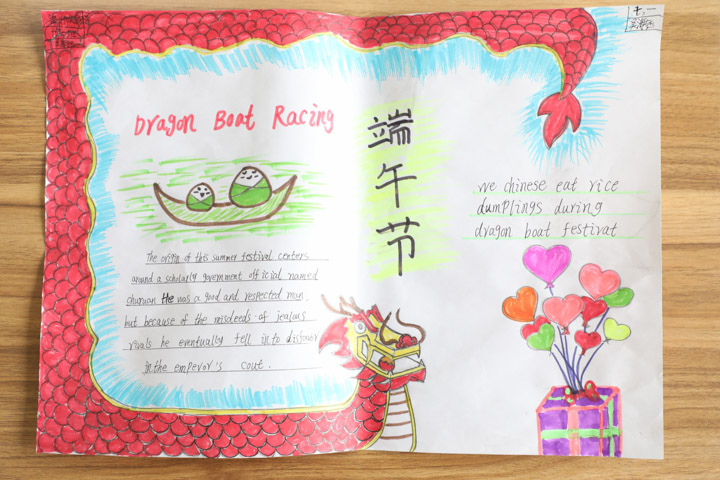 七、一
Dragon Boat Racing
The origin of this summer festival centers
around a scholarly government official named
chuyuan He was a good and respected man,
but because of the misdeeds of jealous
rivals he eventually fell into disfavor
in the emperor's cout.
端午节
we chinese eat rice
dumplings during
dragon boat festivat